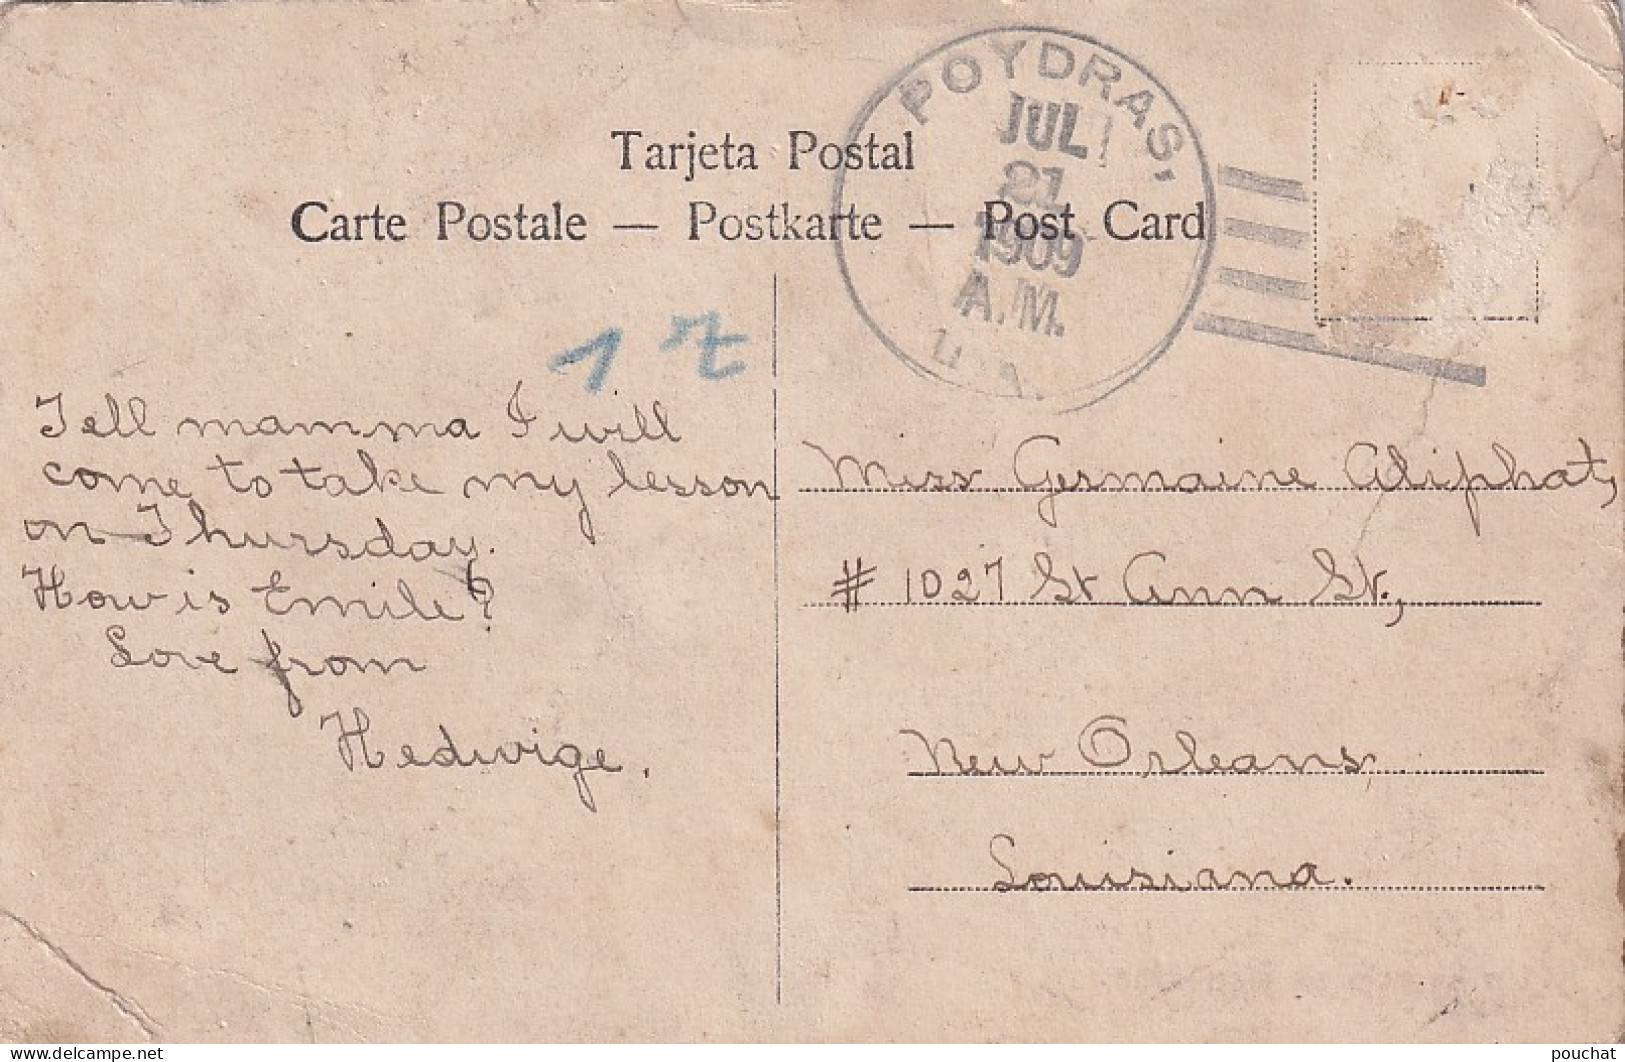 Tarjeta Postal
Carte Postale — Postkarte — Post Card
POYDRAS,
JUL
21
1909
A.M.
LA.
Tell mamma I will
come to take my lesson
on Thursday.
How is Emile?
Love from
Hedwige.
Miss Germaine Aliphat,
# 1027 St Ann St.,
New Orleans
Louisiana.
delcampe.net
pouchat